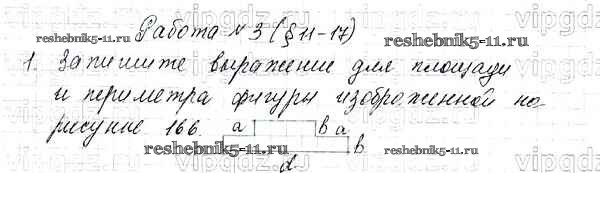 Работа № 3 (§ 11-17)
1. Запишите выражение для площади
и периметра фигуры изображенной на
рисунке 166. a b a
b
d
reshebnik5-11.ru
reshebnik5-11.ru
reshebnik5-11.ru
reshebnik5-11.ru
vipgdz.ru
vipgdz.ru
vipgdz.ru